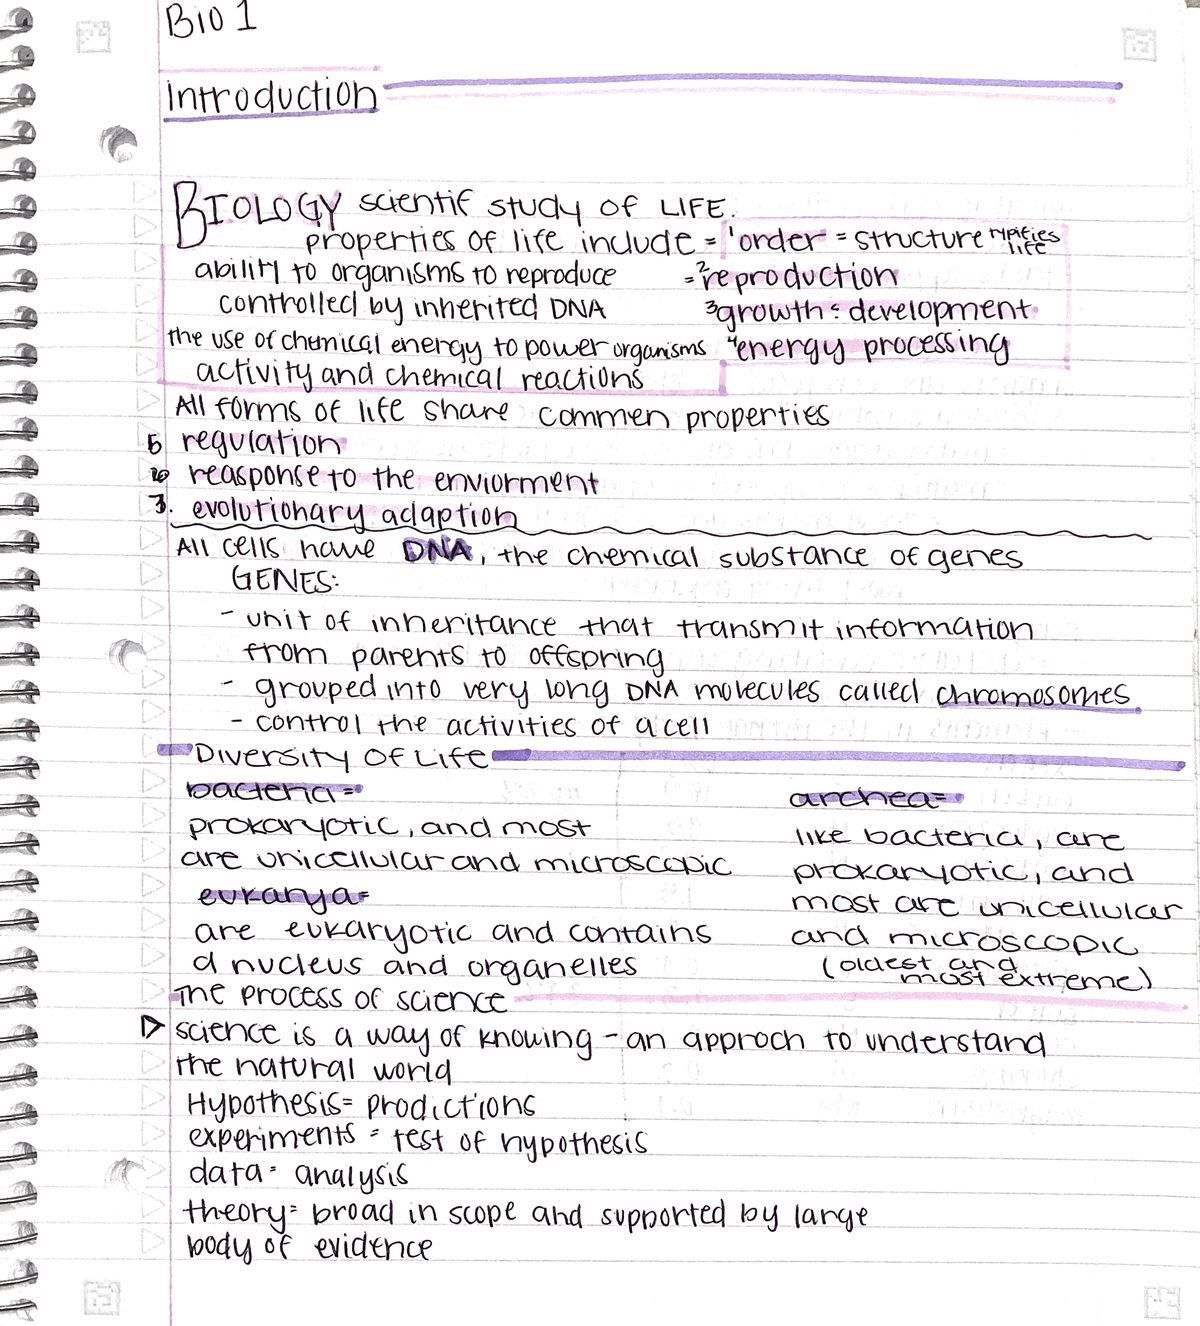 BIO 1
Introduction
BIOLOGY scientif study of LIFE.
properties of life include = 1order = structure typifies life
ability to organisms to reproduce =2reproduction
controlled by inherited DNA 3growth = development
the use of chemical energy to power organisms 4energy processing
activity and chemical reactions
All forms of life share commen properties
5 regulation
6 reasponse to the enviorment
7. evolutionary adaption
All cells have DNA, the chemical substance of genes
GENES:
- unit of inheritance that transmit information
from parents to offspring
- grouped into very long DNA molecules called chromosomes
- control the activities of a cell
Diversity Of Life
bacteria=
prokaryotic, and most
are unicellular and microscopic
eukarya=
are eukaryotic and contains
a nucleus and organelles
archea=
like bacteria, are
prokaryotic, and
most are unicellular
and microscopic
(oldest and
most extreme)
The process of science
science is a way of knowing - an approch to understand
the natural world
Hypothesis= prodictions
experiments = test of hypothesis
data= analysis
theory= broad in scope and supported by large
body of evidence